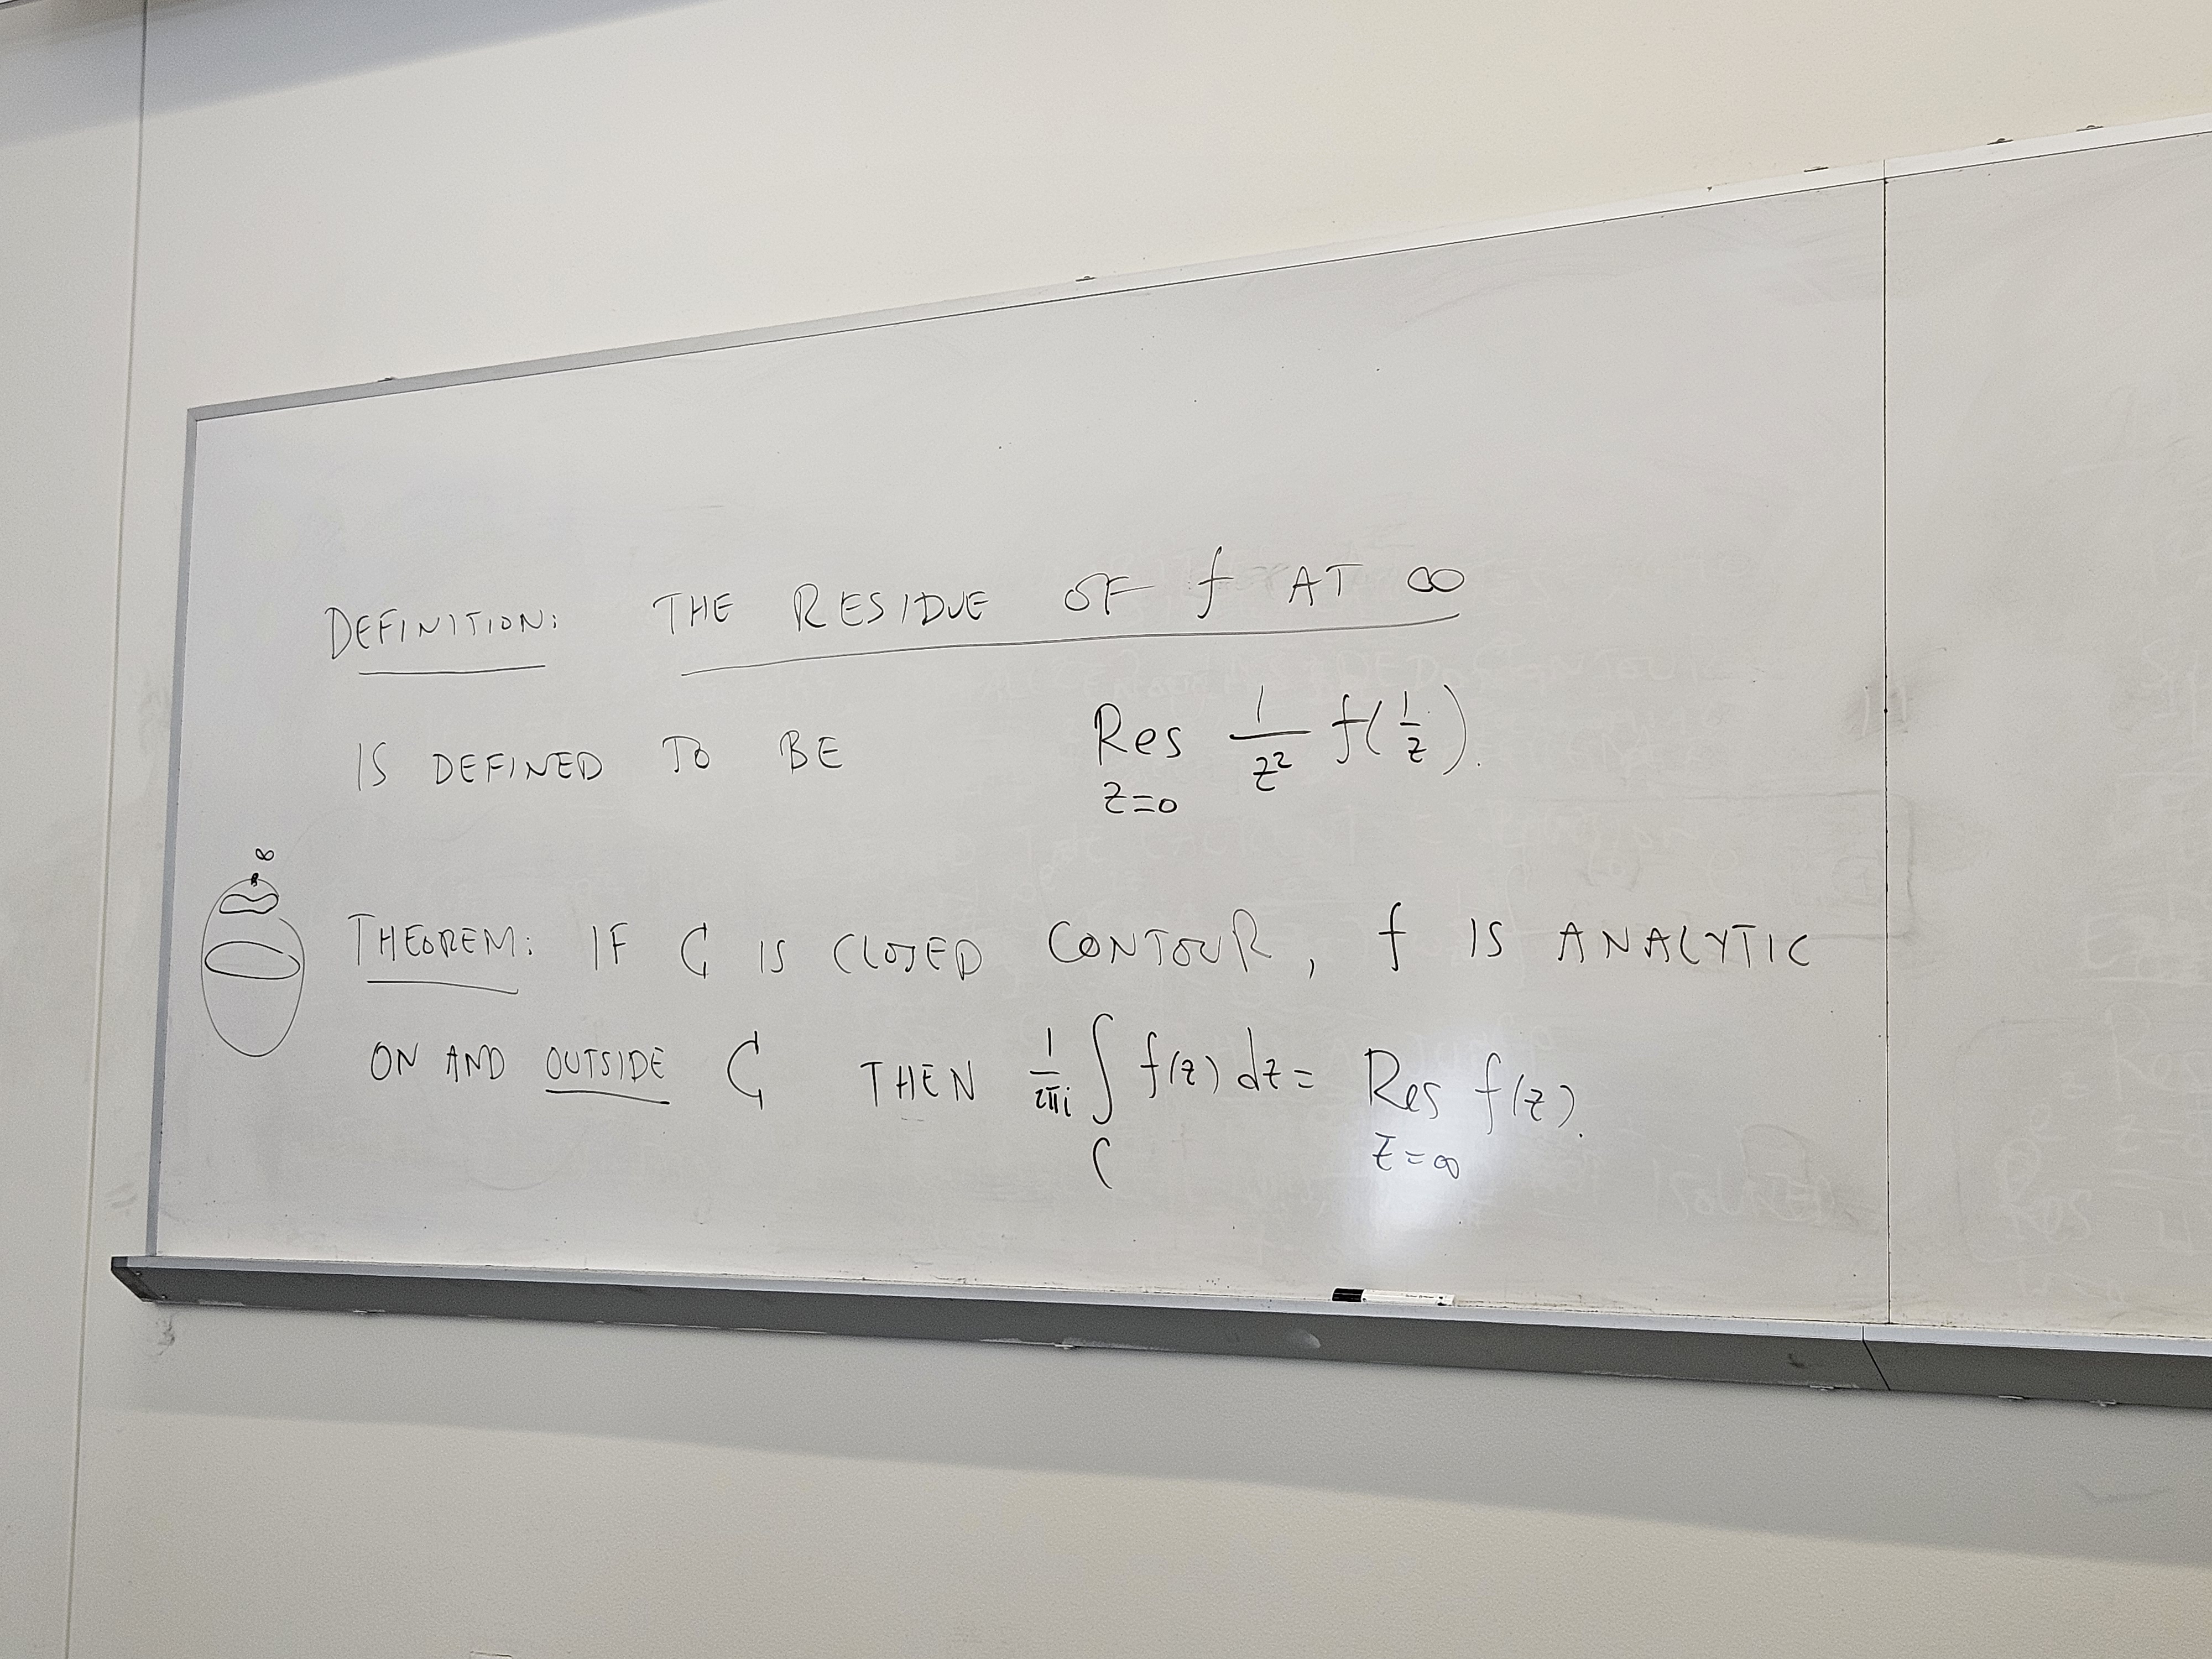 DEFINITION: THE RESIDUE OF f AT ∞
IS DEFINED TO BE Res_{z=0} \frac{1}{z^2} f(\frac{1}{z}).
∞
THEOREM: IF C IS CLOSED CONTOUR, f IS ANALYTIC
ON AND OUTSIDE C THEN \frac{1}{2πi} ∫_C f(z) dz = Res_{z=∞} f(z).